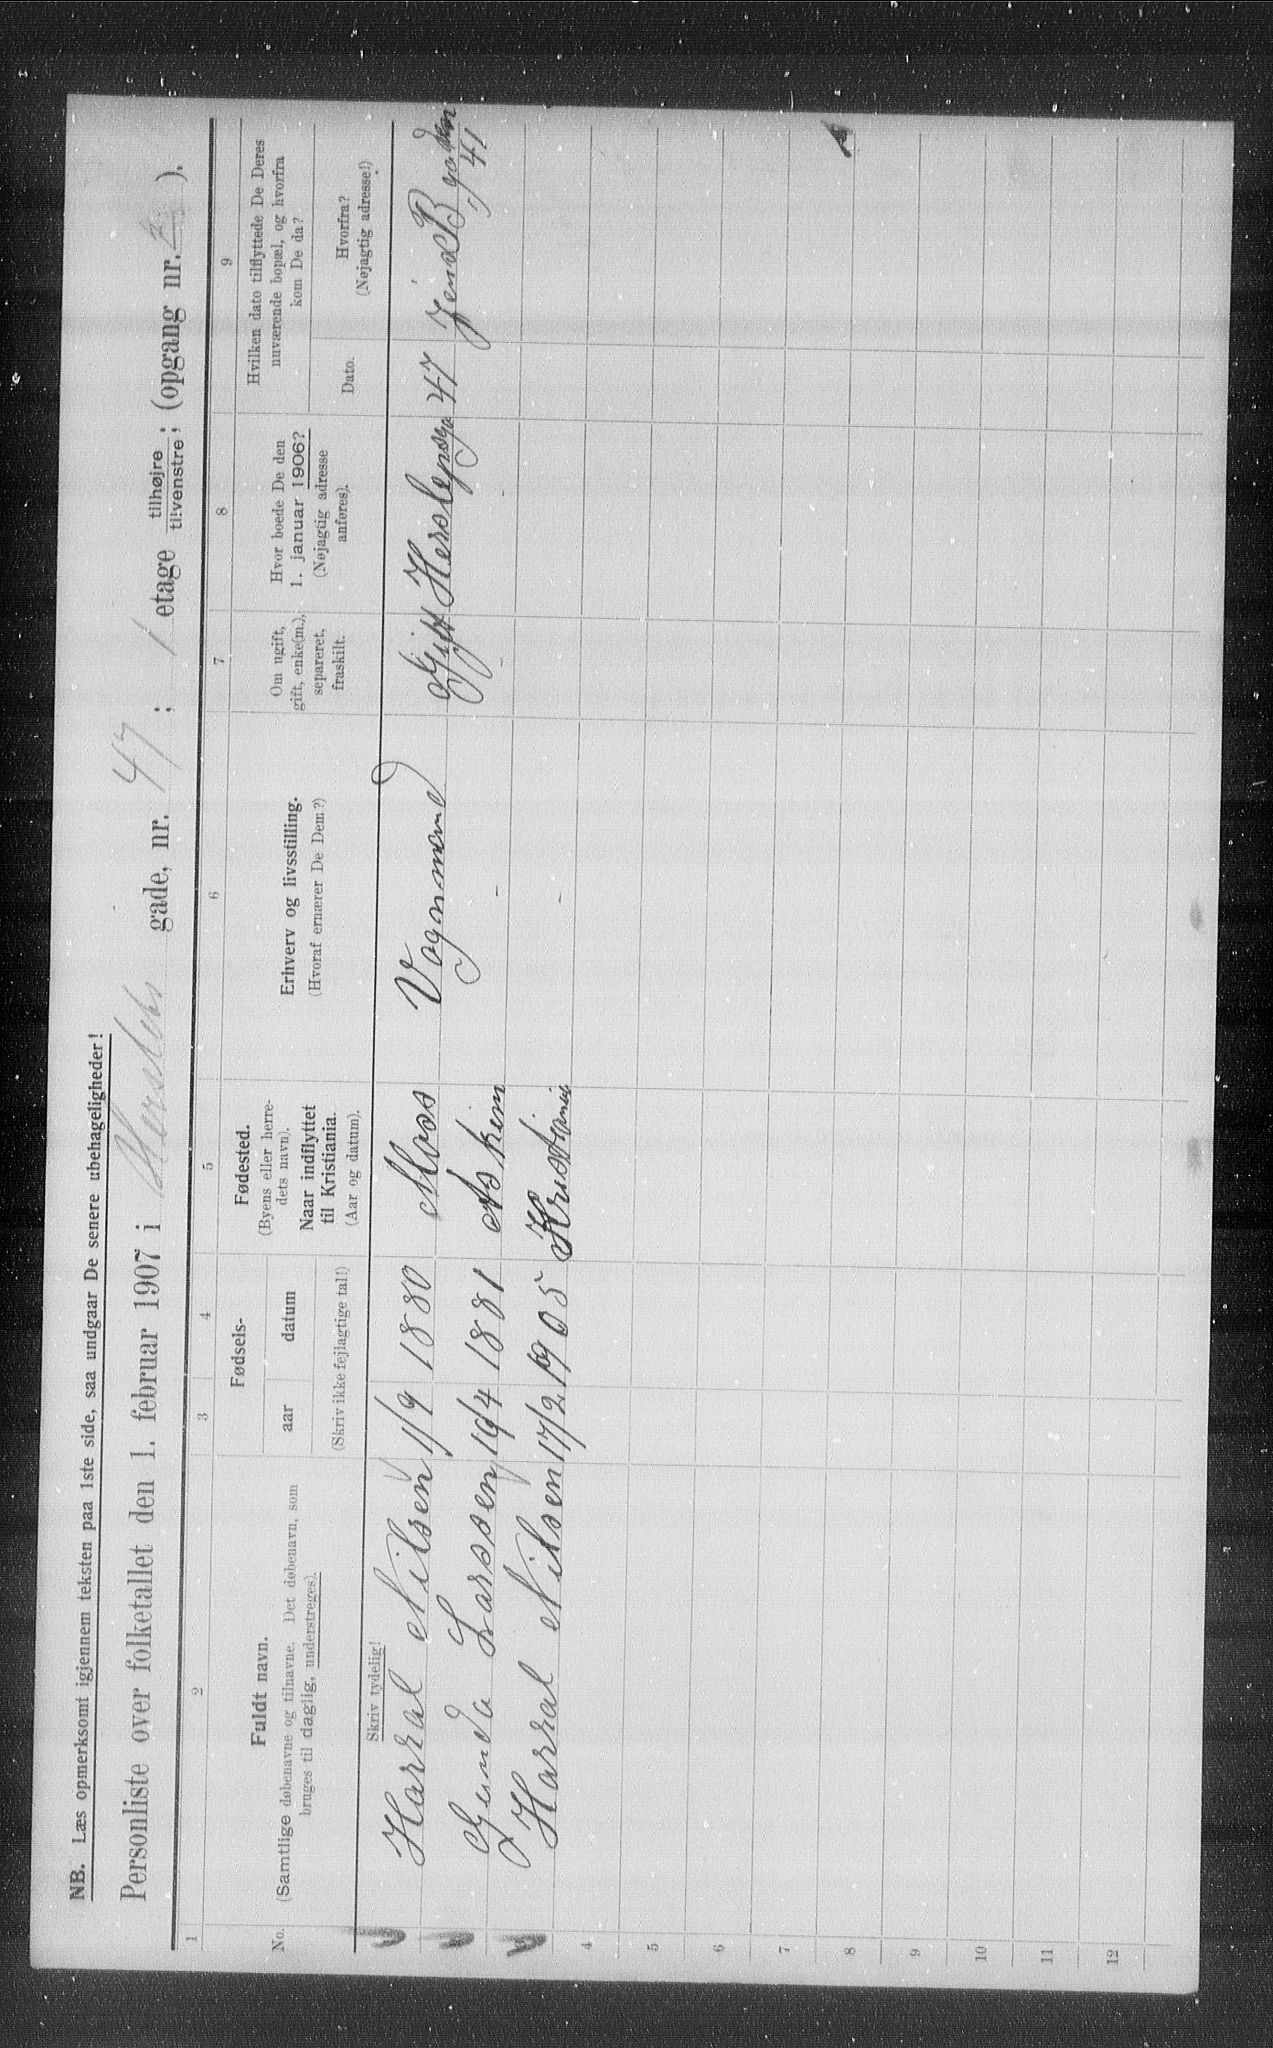 NB. Læs opmerksomt igjennem teksten paa 1ste side, saa undgaar De senere ubehageligheder!
Personliste over folketallet den 1. februar 1907 i Herslebs gade, nr. 47; 1 etage tilhøjre tilvenstre; (opgang nr. 2).
1 2 3 4 5 6 7 8 9
No.
Fuldt navn.
(Samtlige døbenavne og tilnavne. Det døbenavn, som
bruges til daglig, understreges).
Fødsels-
aar datum
(Skriv ikke fejlagtige tal!)
Fødested.
(Byens eller herre-
dets navn).
Naar indflyttet
til Kristiania.
(Aar og datum).
Erhverv og livsstilling.
(Hvoraf ernærer De Dem?)
Om ugift,
gift, enke(m.),
separeret,
fraskilt.
Hvor boede De den
1. januar 1906?
(Nøjagtig adresse
anføres).
Hvilken dato tilflyttede De Deres
nuværende bopæl, og hvorfra
kom De da?
Dato.
Hvorfra?
(Nøjagtig adresse!)
Skriv tydelig!
Harral Nilsen 1/9 1880 Moss Vognmend Gift Herslepsga 47
41
Gunda Larssen 19/4 1881 Askim - -
Harral Nilsen 17/2 1905 Kristiania -
4
5
6
7
8
9
10
11
12